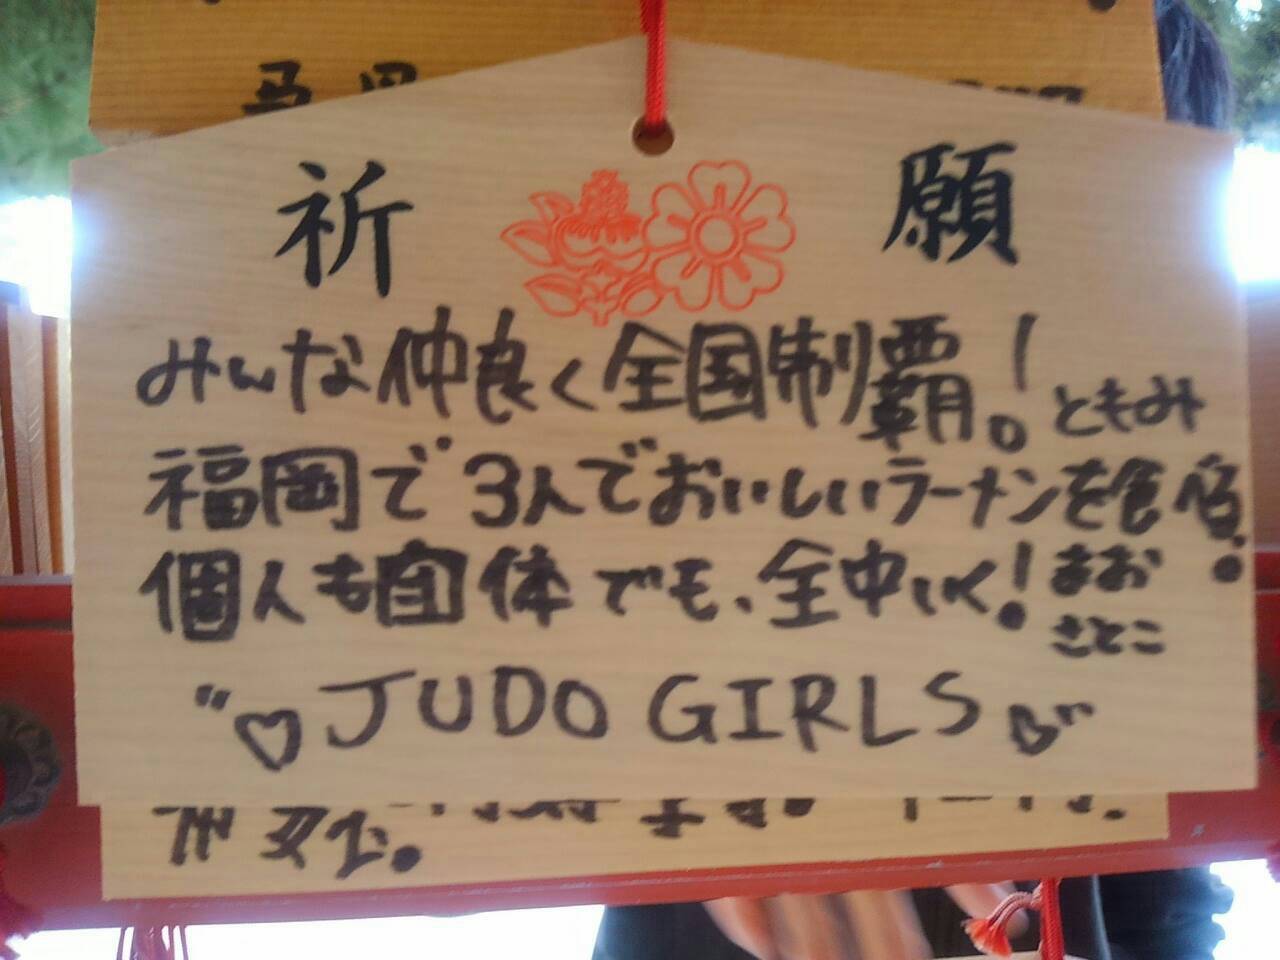 祈願
みんな仲良く全国制覇！ともみ
福岡で3人でおいしいラーメンを食
個人も団体でも、全中いく！まお
さとこ
"♡JUDO GIRLS♡"